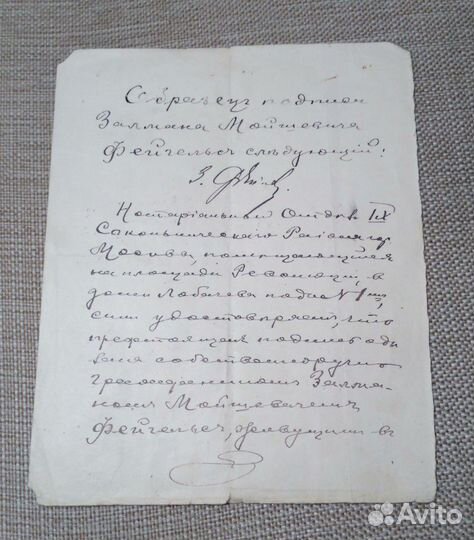 Образецъ подписи
Залмана Мойшевича
Фейгельсъ слѣдующій:
З. Фейг
Нотаріальный Отдѣлъ
Сокольническаго Района гор.
Москвы, помѣщающійся
на площади Революціи, въ
домѣ Лобачева подъ №
симъ удостовѣряетъ, что
предстоящая подпись сдѣ
лана собственноручно
гражданиномъ Залма-
номъ Мойшевичемъ
Фейгельсъ, живущимъ въ
Avito